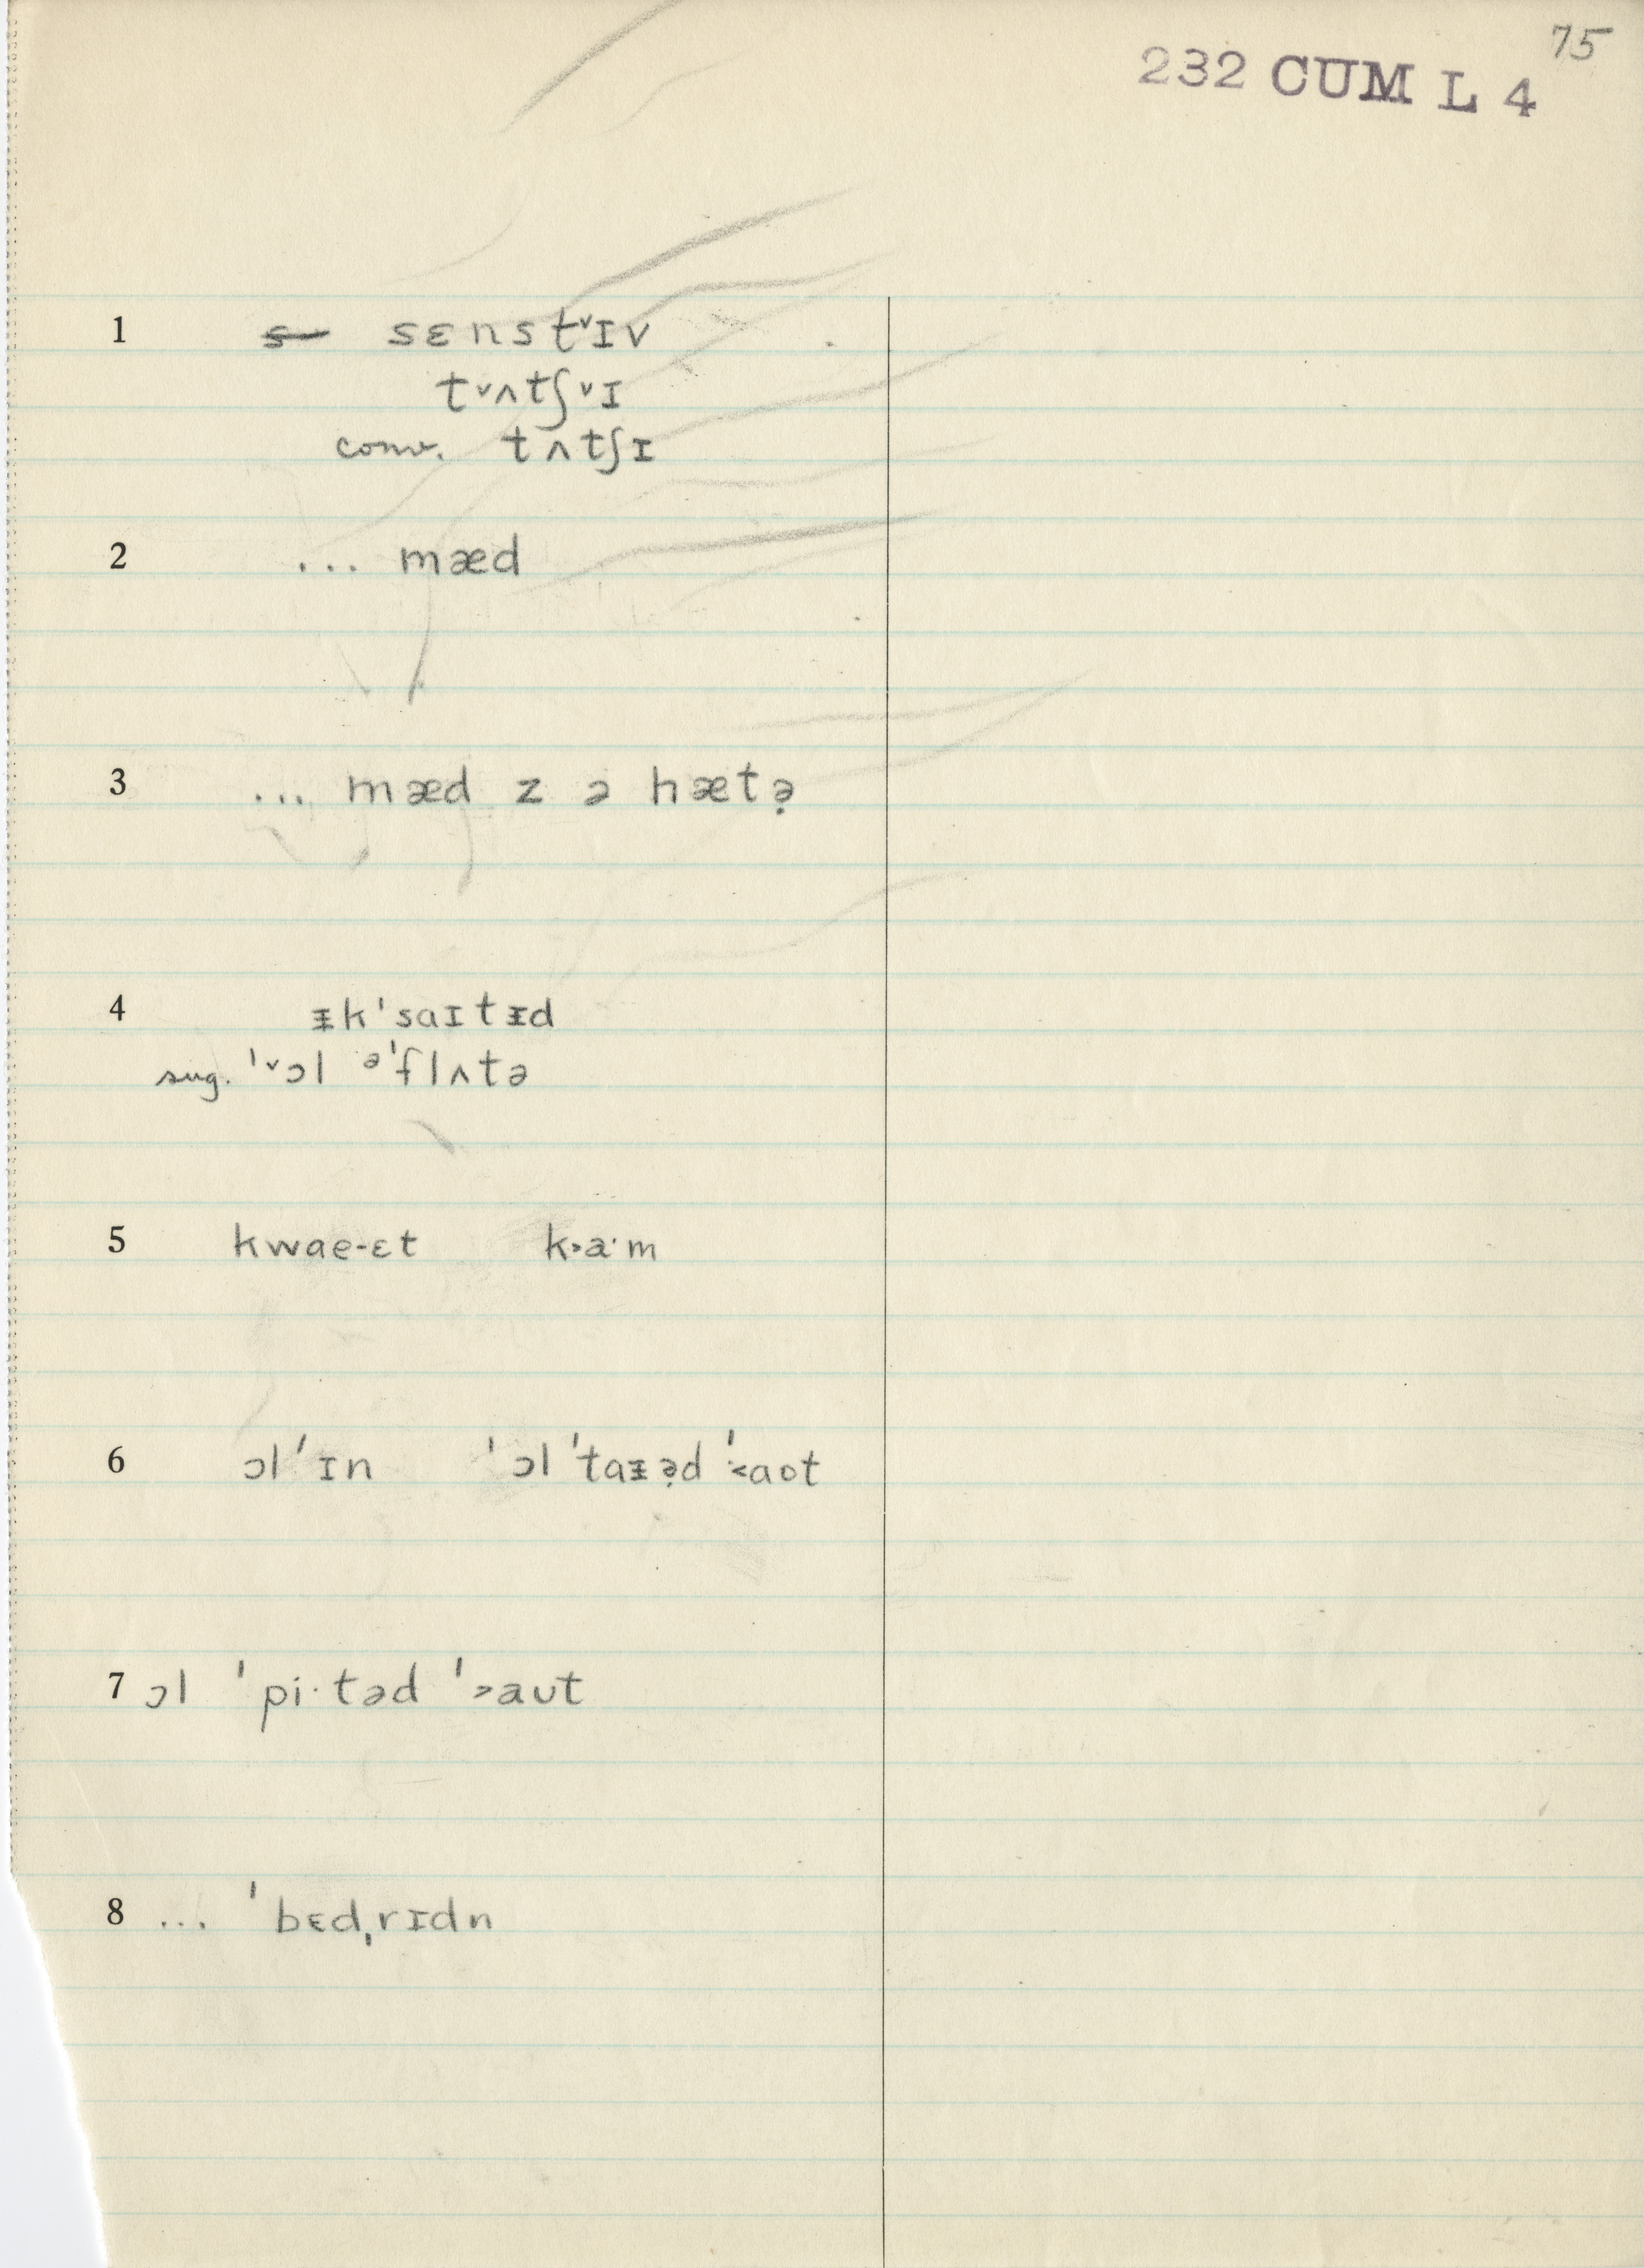 75
232 CUM L 4
1 s sɛnst˅ɪv
t˅ʌtʃ˅ɪ
conv. tʌtʃɪ
2 ... mæd
3 ... mæd z ə hætə̣
4 ᵻk'saɪtᵻd
sug. '˅ɔl ə'flʌtə
5 kwae-ɛt k˃a·m
6 ɔl 'ɪn 'ɔl 'taᵻə̣d '˂aot
7 ɔl 'pi·təd '˃aʊt
8 ... 'bɛdˌrɪdn